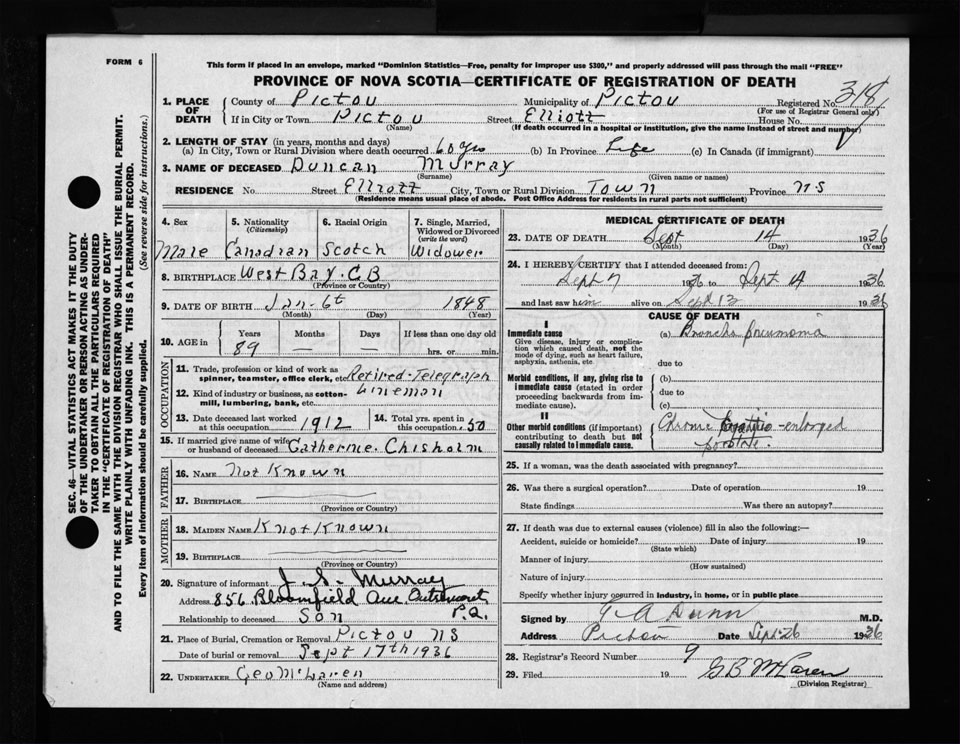 FORM 6
This form if placed in an envelope, marked "Dominion Statistics—Free, penalty for improper use $300," and properly addressed will pass through the mail "FREE"
PROVINCE OF NOVA SCOTIA—CERTIFICATE OF REGISTRATION OF DEATH
SEC. 46—VITAL STATISTICS ACT MAKES IT THE DUTY
OF THE UNDERTAKER OR PERSON ACTING AS UNDER-
TAKER TO OBTAIN ALL THE PARTICULARS REQUIRED
IN THE "CERTIFICATE OF REGISTRATION OF DEATH"
AND TO FILE THE SAME WITH THE DIVISION REGISTRAR WHO SHALL ISSUE THE BURIAL PERMIT.
WRITE PLAINLY WITH UNFADING INK. THIS IS A PERMANENT RECORD.
Every item of information should be carefully supplied. (See reverse side for instructions.)
1. PLACE OF DEATH
County of Pictou Municipality of Pictou Registered No. 318
(For use of Registrar General only)
If in City or Town Pictou Street Elliott House No.
(Name) (If death occurred in a hospital or institution, give the name instead of street and number)
2. LENGTH OF STAY (in years, months and days)
(a) In City, Town or Rural Division where death occurred 60 yrs (b) In Province Life (c) In Canada (if immigrant)
3. NAME OF DECEASED Duncan Murray
(Surname) (Given name or names)
RESIDENCE No. Street Elliott City, Town or Rural Division Town Province NS
(Residence means usual place of abode. Post Office Address for residents in rural parts not sufficient)
4. Sex Male
5. Nationality (Citizenship) Canadian
6. Racial Origin Scotch
7. Single, Married, Widowed or Divorced (write the word) Widower
8. BIRTHPLACE West Bay. C.B
(Province or Country)
9. DATE OF BIRTH Jan - 6t 1848
(Month) (Day) (Year)
10. AGE in Years 89 Months — Days — If less than one day old hrs. or min.
OCCUPATION
11. Trade, profession or kind of work as spinner, teamster, office clerk, etc. Retired - Telegraph
12. Kind of industry or business, as cotton-mill, lumbering, bank, etc. Lineman
13. Date deceased last worked at this occupation 1912
14. Total yrs. spent in this occupation 50
15. If married give name of wife or husband of deceased Catherine Chisholm
FATHER
16. NAME Not Known
17. BIRTHPLACE
(Province or Country)
MOTHER
18. MAIDEN NAME Knot Known
19. BIRTHPLACE
(Province or Country)
20. Signature of informant J. S. Murray
Address 856 Bloomfield Ave Outremont P.Q.
Relationship to deceased Son
21. Place of Burial, Cremation or Removal Pictou NS
Date of burial or removal Sept 17th 1936
22. UNDERTAKER Geo McLaren
(Name and address)
MEDICAL CERTIFICATE OF DEATH
23. DATE OF DEATH Sept 14 1936
(Month) (Day) (Year)
24. I HEREBY CERTIFY that I attended deceased from:
Sept 7 1936 to Sept 14 1936
and last saw him alive on Sept 13 1936
CAUSE OF DEATH
I
Immediate cause (a) Broncho pneumonia
Give disease, injury or complication which caused death, not the mode of dying, such as heart failure, asphyxia, asthenia, etc.
due to
Morbid conditions, if any, giving rise to immediate cause (stated in order proceeding backwards from immediate cause).
(b)
due to
(c)
II
Other morbid conditions (if important) contributing to death but not causally related to immediate cause.
Chronic - enlarged
prostate.
25. If a woman, was the death associated with pregnancy?
26. Was there a surgical operation? Date of operation 19
State findings Was there an autopsy?
27. If death was due to external causes (violence) fill in also the following:—
Accident, suicide or homicide? Date of injury 19
(State which)
Manner of injury
(How sustained)
Nature of injury
Specify whether injury occurred in Industry, in home, or in public place
Signed by G A Dunn M.D.
Address Pictou Date Sept. 26 1936
28. Registrar's Record Number 9
29. Filed 19 G B McLaren
(Division Registrar)